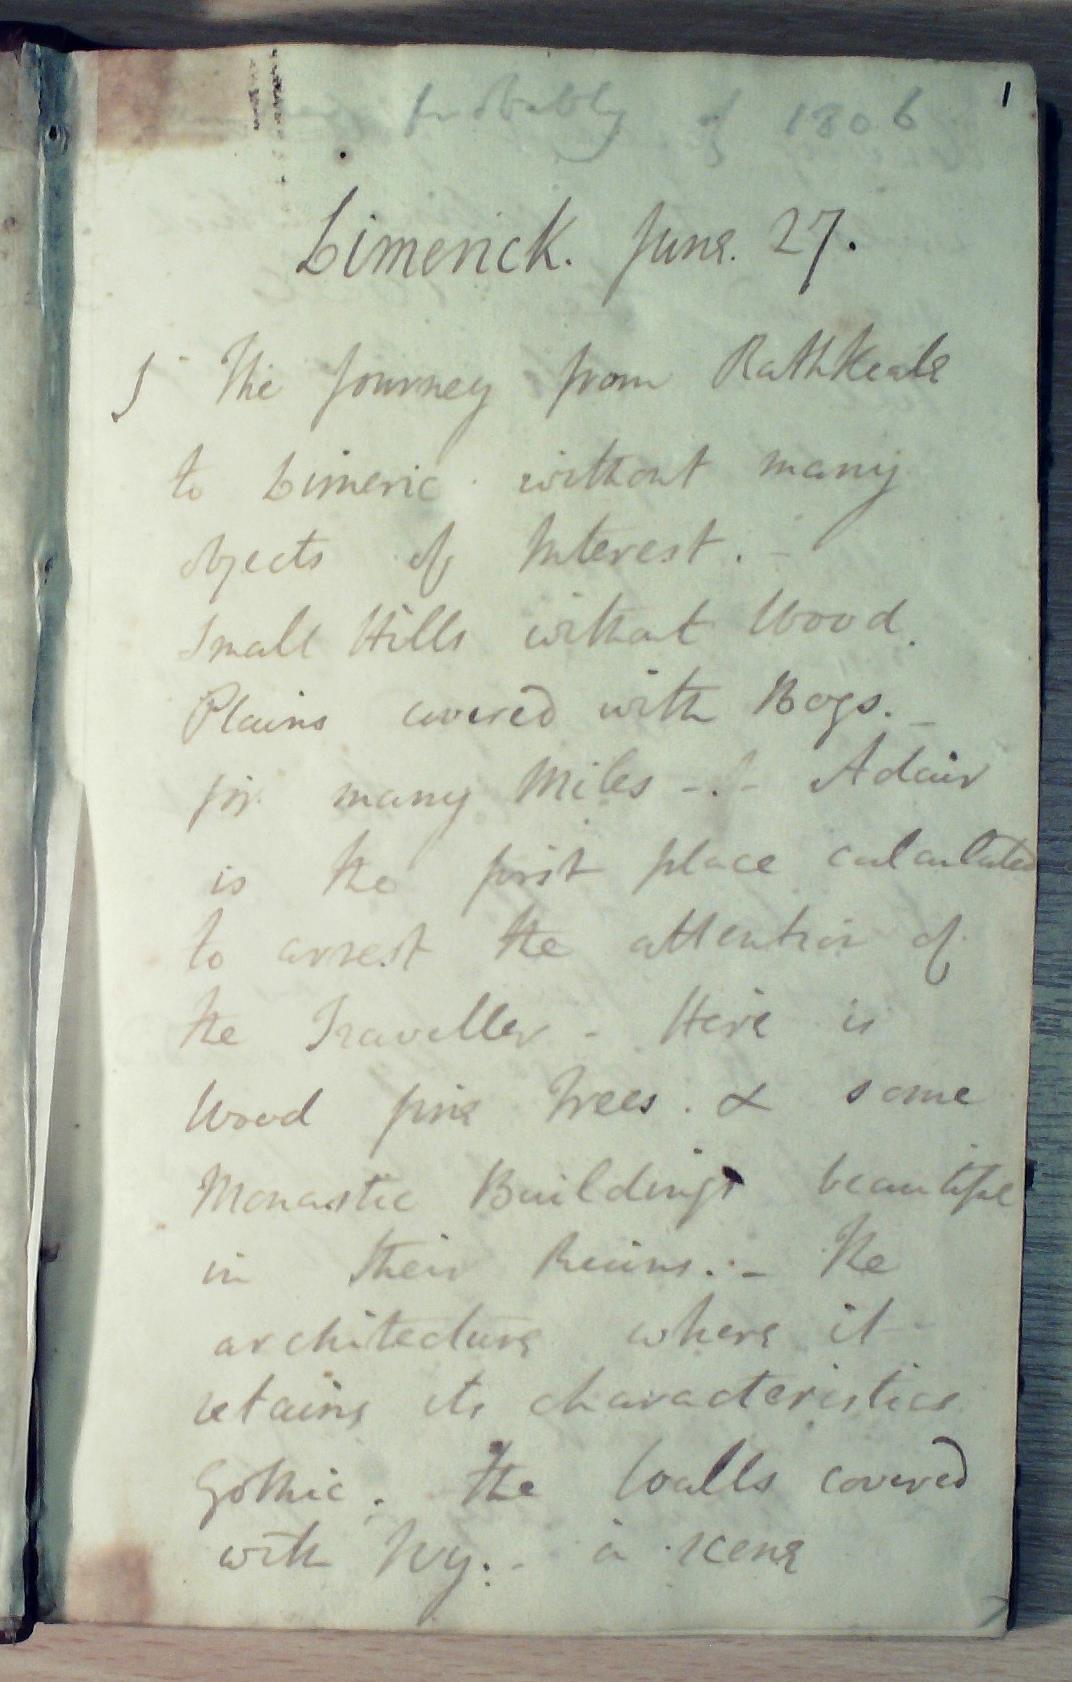 probably of 1806
1
Limerick. June. 27.
The Journey from RathKeale
to Limeric without many
objects of Interest. -
Small Hills without Wood.
Plains covered with Bogs. _
for many Miles -.- Adair
is the first place calculated
to arrest the attention of
the Traveller - Here is
Wood fine Trees. & some
Monastic Buildings beautiful
in their Ruins.:- The
architecture where it
retains its characteristics
Gothic. The Walls covered
with Ivy:- a scene